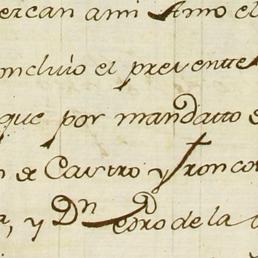 ercan ami Amo el
oncluio el presente
que por mandatto
n de Castro y Troncos
, y Dn Pedro de la